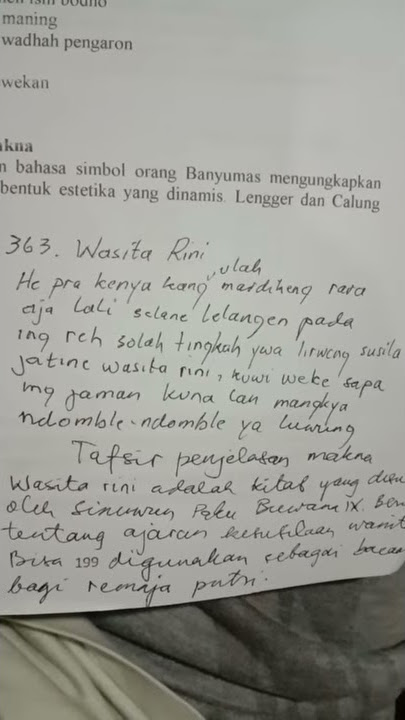 maning
wadhah pengaron
wekan
kna
n bahasa simbol orang Banyumas mengungkapkan
bentuk estetika yang dinamis. Lengger dan Calung
363. Wasita Rini
ulah
He pra kenya kang mardiheng rara
aja lali selane lelangen pada
ing reh solah tingkah ywa lirweng susila
jatine wasita rini, kuwi weke sapa
ing jaman kuna lan mangkya
ndomble-ndomble ya luwung
Tafsir penjelasan makna
Wasita rini adalah kitab yang
oleh Sinuwun Paku Buwana IX. Ber
tentang ajaran kesusilaan wanit
Bisa 199 digunakan sebagai bacaan
bagi remaja putri.